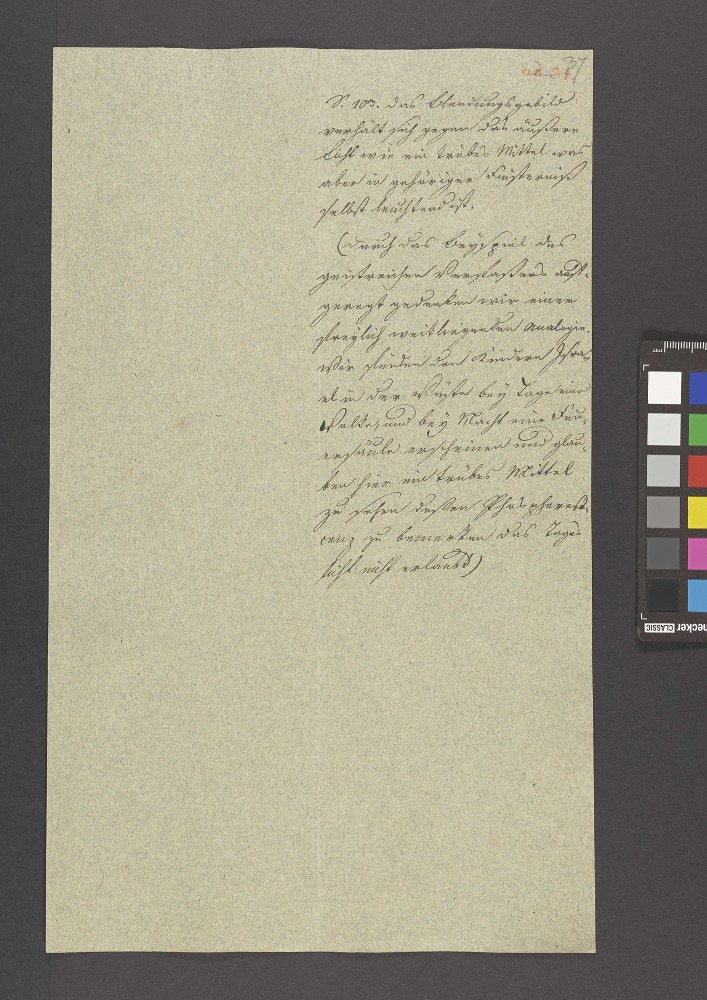 37
ad 31.
S. 103. das Blendungsgebild
verhält sich gegen das äußere
Licht wie ein trübes Mittel was
aber in gehöriger Finsterniß
selbst leuchtend ist.
(Durch das Beyspiel des
geistreichen Verfaßers auf-
geregt gedenken wir einer
freylich weitliegenden Analogie.
Wir finden den Kindern Isra-
el in der Wüste bey Tage eine
Wolke, und bey Nacht eine Feu-
ersäule erscheinen und glau-
ben hier ein trübes Mittel
zu sehen deßen Phosphores-
cenz zu bemerken das Tages
licht nicht erlaubt)
necker CLASSIC